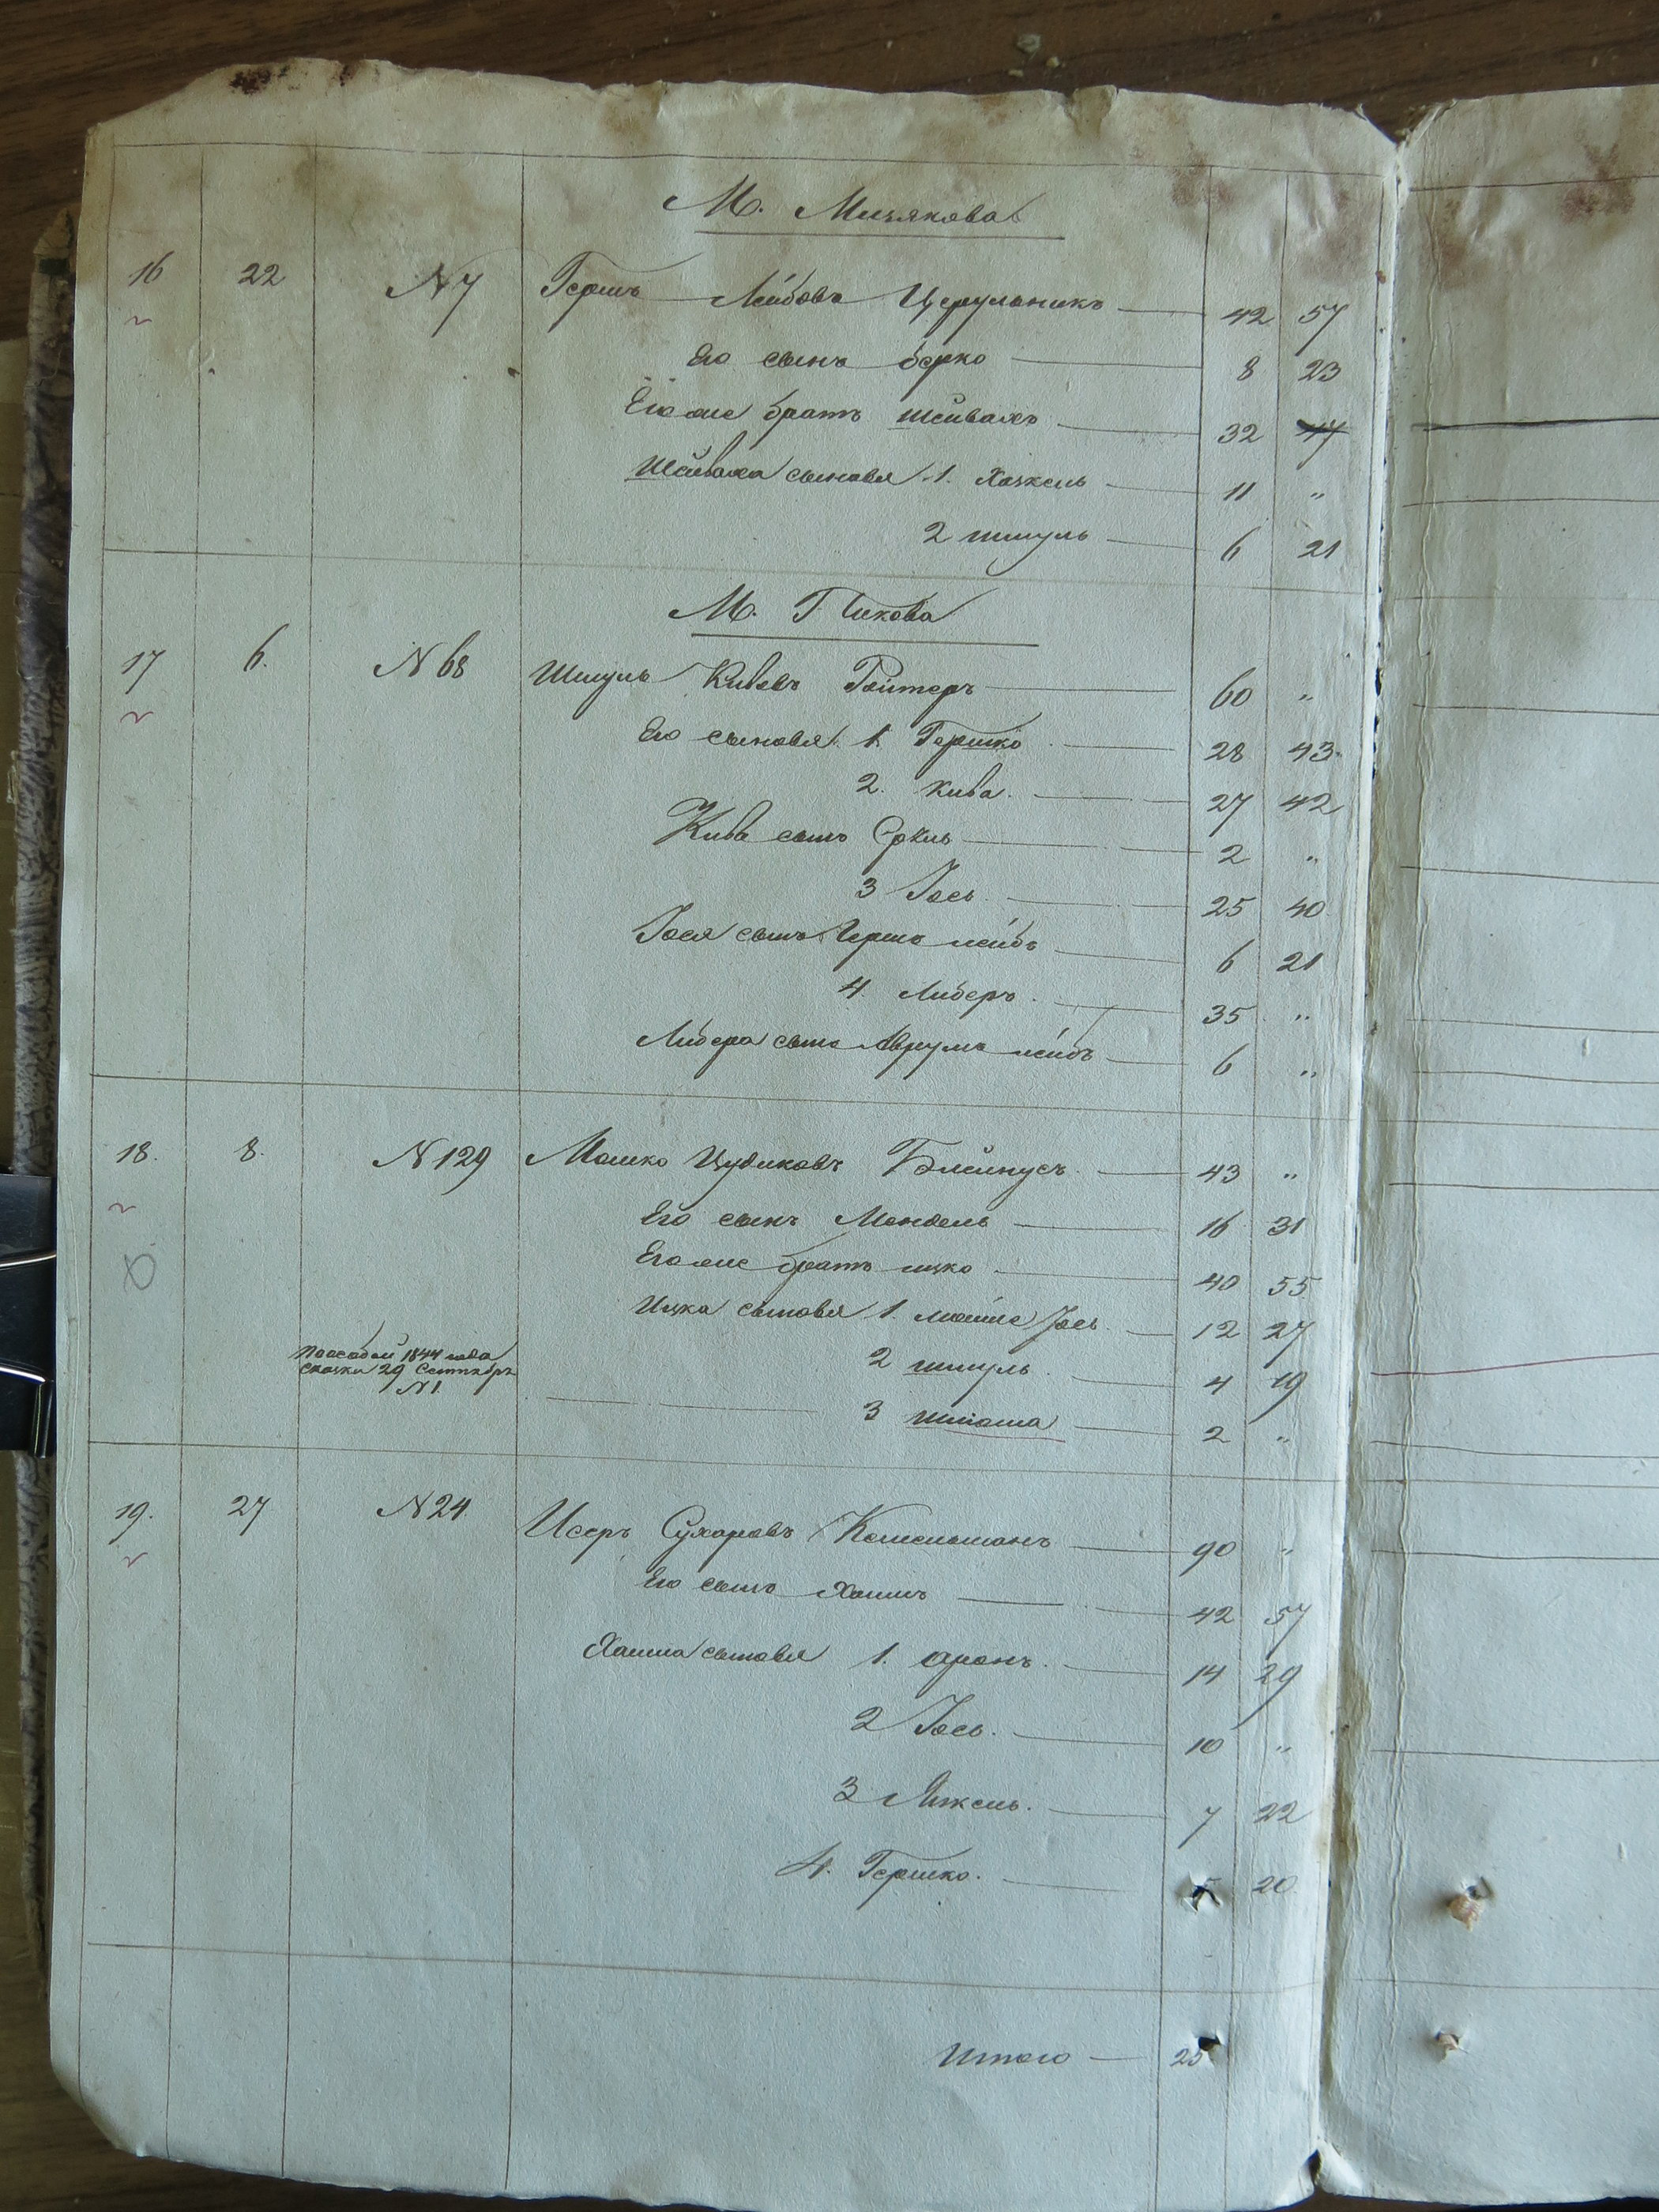 М. Мизякова
16 22 N 7 Гершъ Лейбовъ Церульникъ 42 57
Его сынъ берко 8 23
Его же братъ Шейвахъ 32 47
Шейваха сыновья 1. Хацкель 11 "
2 шмуль 6 21
М. Пикова
17 6. N 68 Шмуль Кивовъ Ройтеръ 60 "
Его сыновья 1. Гершко 28 43.
2. Кива. 27 42
Кивы сынъ Сруль 2 "
3 Iось 25 40
Iося сынъ Гершъ лейбъ 6 21
4. Либеръ. 35 "
Либера сынъ Аврумъ лейбъ 6 "
18. 8. N 129 Мошко Цудиковъ 43 "
Его сынъ Мендель 16 31
Его же братъ ицко 40 55
Ицка сыновья 1. мойше Iось. 12 27
По особой 1844 года
сказки 29 Сентября
N 1
2 шмуль 4 19
3 2 "
19. 27 N 24 Исеръ 90 "
Его сынъ Хаимъ 42 57
Хаима сыновья 1. аронъ. 14 29
2 Iось. 10 "
3 Янкель. 7 22
4. Гершко. 5 20
Итого 25